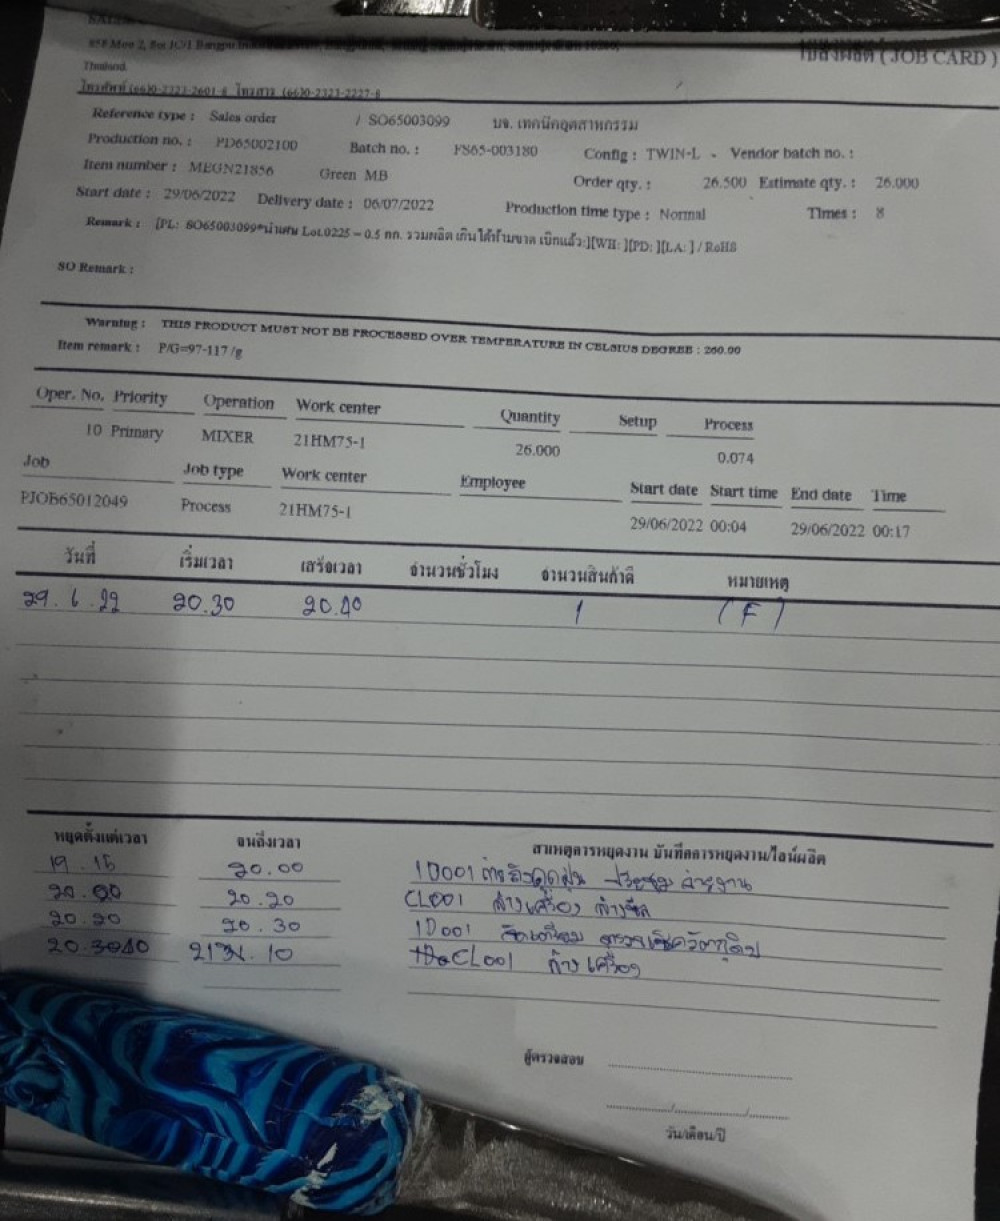 858 Moo 2, Soi 1C/1 Bangpu
ใบสั่งผลิต ( JOB CARD )
Thailand.
โทรศัพท์ (66)0-2323-2601-8 โทรสาร (66)0-2323-2227-8
Reference type : Sales order / SO65003099 บจ. เทคนิคอุตสาหกรรม
Production no. : PD65002100 Batch no. : FS65-003180 Config : TWIN-L - Vendor batch no. :
Item number : MEGN21856 Green MB Order qty. : 26.500 Estimate qty. : 26.000
Start date : 29/06/2022 Delivery date : 06/07/2022 Production time type : Normal Times : 8
Remark : [PL: SO65003099*นำเศษ Lot.0225 = 0.5 กก. รวมผลิต เกินได้ห้ามขาด เบิกแล้ว:][WH: ][PD: ][LA: ] / RoHS
SO Remark :
Warning : THIS PRODUCT MUST NOT BE PROCESSED OVER TEMPERATURE IN CELSIUS DEGREE : 260.00
Item remark : P/G=97-117 /g
Oper. No. Priority Operation Work center Quantity Setup Process
10 Primary MIXER 21HM75-1 26.000 0.074
Job Job type Work center Employee Start date Start time End date Time
PJOB65012049 Process 21HM75-1 29/06/2022 00:04 29/06/2022 00:17
วันที่ เริ่มเวลา เสร็จเวลา จำนวนชั่วโมง จำนวนสินค้าดี หมายเหตุ
29.6.22 20.30 20.40 1 (F)
หยุดตั้งแต่เวลา จนถึงเวลา สาเหตุการหยุดงาน บันทึกการหยุดงาน/ไลน์ผลิต
19.15 20.00 1D001 ประชุม จ่ายงาน
20.00 20.20 CL001 ล้างเครื่อง ล้างชีล
20.20 20.30 1D001 จัดเตรียม ตรวจเช็ควัตถุดิบ
20.40 21.10 CL001 ล้างเครื่อง
ผู้ตรวจสอบ
วัน/เดือน/ปี